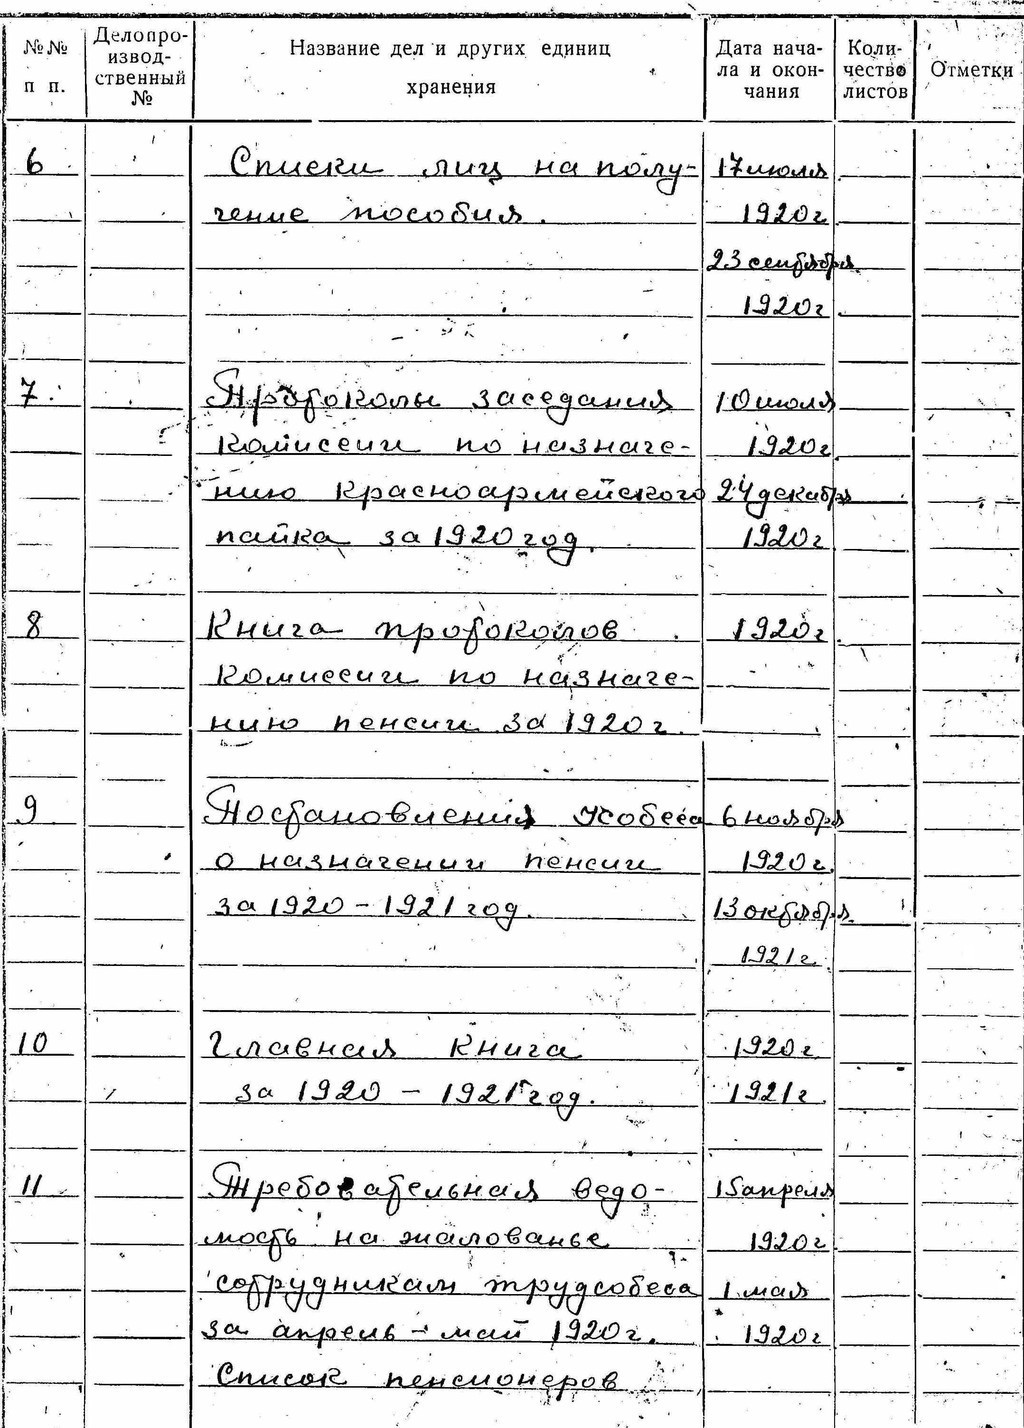 №№ п п.
Делопро-
извод-
ственный
№
Название дел и других единиц
хранения
Дата нача-
ла и окон-
чания
Коли-
чество
листов
Отметки
6 Списки лиц на полу- 17 июля
чение пособия. 1920 г
23 сентября
1920 г
7. Протоколы заседания 10 июля
комиссии по назначе- 1920 г.
нию красноармейского 24 декабря
пайка за 1920 год. 1920 г
8 Книга протоколов 1920 г.
комиссии по назначе-
нию пенсии за 1920 г.
9 Постановления Усобеса 6 ноября
о назначении пенсии 1920 г.
за 1920 - 1921 год. 13 октября
1921 г.
10 Главная книга 1920 г.
за 1920 - 1921 год. 1921 г.
11 Требовательная ведо- 15 апреля
мость на жалованье 1920 г
сотрудникам трудсобеса 1 мая
за апрель - май 1920 г. 1920 г
Список пенсионеров